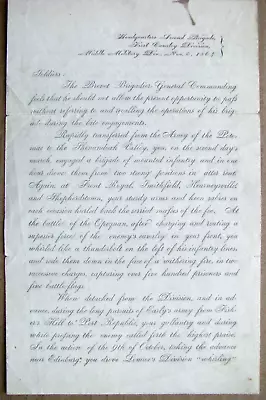 Headquarters Second Brigade,
First Cavalry Division,
Middle Military Div., Nov. 6, 1864
Soldiers:
The Brevet Brigadier General Commanding
feels that he should not allow the present opportunity to pass
without referring to and recalling the operations of his Brig-
ade during the late engagements.
Rapidly transferred from the Army of the Poto-
mac to the Shenandoah Valley, you, on the second day's
march, engaged a brigade of mounted infantry, and in one
hour drove them from two strong positions in utter rout.
Again, at Front Royal, Smithfield, Kearneysville
and Shepherdstown, your steady arms and keen sabres on
each occasion hurled back the serried masses of the foe. At
the battle of the Opequan, after charging and routing a
superior force of the enemy's cavalry in your front, you
whirled like a thunderbolt on the left of his infantry lines
and rode them down in the face of a withering fire, in two
successive charges, capturing over five hundred prisoners and
five battle flags.
When detached from the Division, and in ad-
vance, during the long pursuit of Early's army from Fish-
er's Hill to Port Republic, your gallantry and daring
while pressing the enemy called forth the highest praise.
In the action of the 9th of October, taking the advance
near Edinburg, you drove Lomax's Division "whirling"